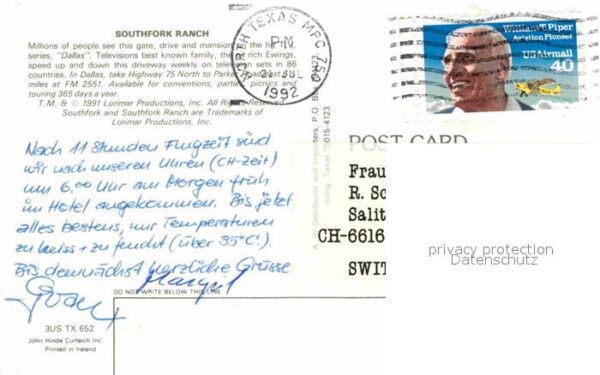 SOUTHFORK RANCH
Millions of people see this gate, drive and mansion
series, "Dallas". Televisions best known family, the rich Ewings,
speed up and down this driveway weekly on television sets in 86
countries. In Dallas, take Highway 75 North to
miles at FM 2551. Available for conventions, parties, picnics and
touring 365 days a year.
T.M. & © 1991 Lorimar Productions, Inc. All Rights Reserved
Southfork and Southfork Ranch are Trademarks of
Lorimar Productions, Inc.
NORTH TEXAS MPC 750
PM
21 JUL
1992
William T. Piper
Aviation Pioneer
US Airmail
40
Nach 11 Stunden Flugzeit sind
wir nach unseren Uhren (CH-Zeit)
um 6.00 Uhr am Morgen früh
im Hotel angekommen. Bis jetzt
alles bestens, nur Temperaturen
zu heiss + zu feucht (über 35°C).
Bis demnächst herzliche Grüsse
Margrit
POST CARD
Frau
R. Sc
Salit
CH-6616
SWIT
privacy protection
Datenschutz
DO NOT WRITE BELOW THIS LINE
3US TX 652
John Hinde Curteich Inc
Printed in Ireland